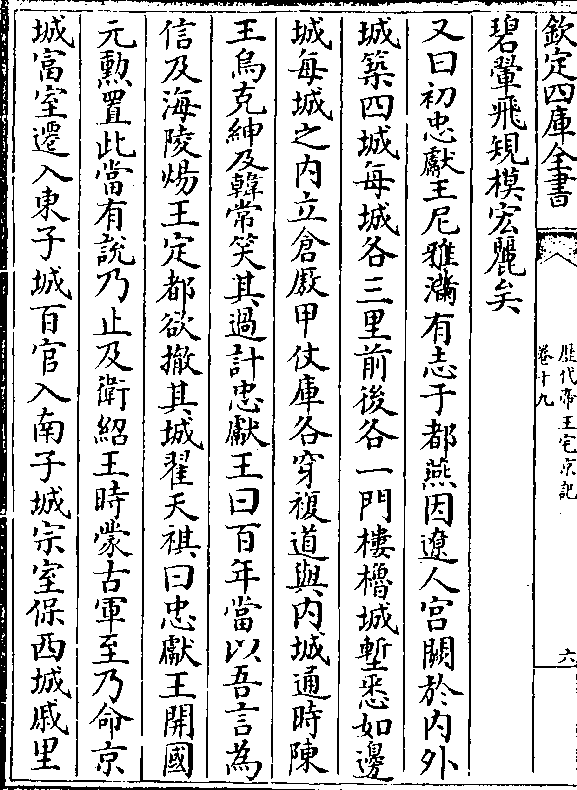 欽定四庫全書
歷代帝王宅京記
卷十九
六
碧翬飛規模宏麗矣
又曰初忠獻王尼雅滿有志于都燕因遼人宮闕於内外
城築四城每城各三里前後各一門樓櫓城塹悉如邊
城每城之内立倉廒甲仗庫各穿複道與内城通時陳
王烏克紳及韓常笑其過計忠獻王曰百年當以吾言為
信及海陵煬王定都欲撤其城翟天祺曰忠獻王開國
元勲置此當有說乃止及衛紹王時蒙古軍至乃命京
城富室遷入東子城百官入南子城宗室保西城戚里